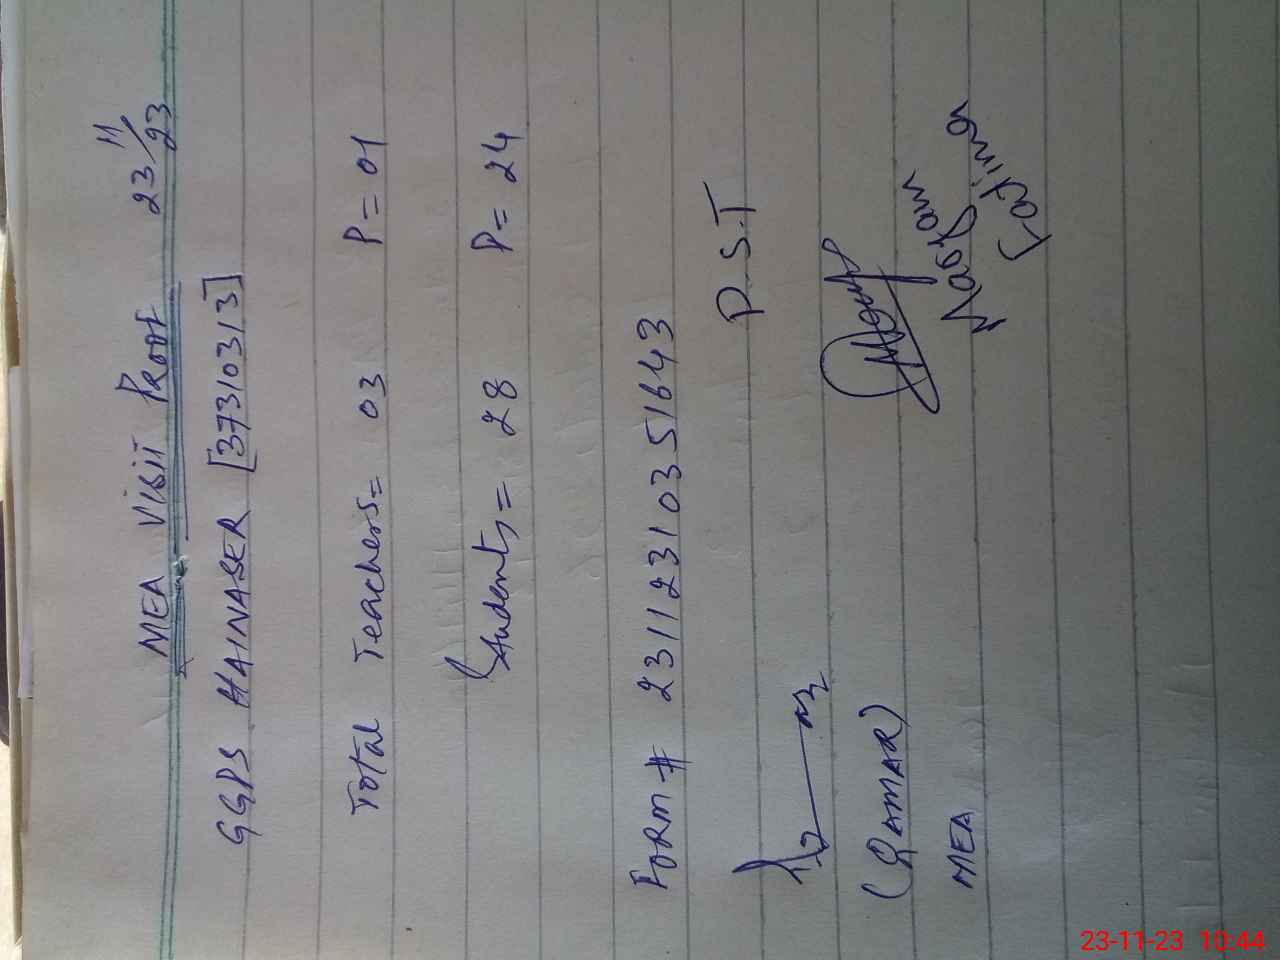 MEA VISIT PROOF 23/11/23
GGPS HAINASER [37310313]
Total Teachers= 03 P= 01
Students= 28 P= 24
FORM # 23112310351643
P.S.T
(QAMAR)
MEA
Fatima
23-11-23 10:44